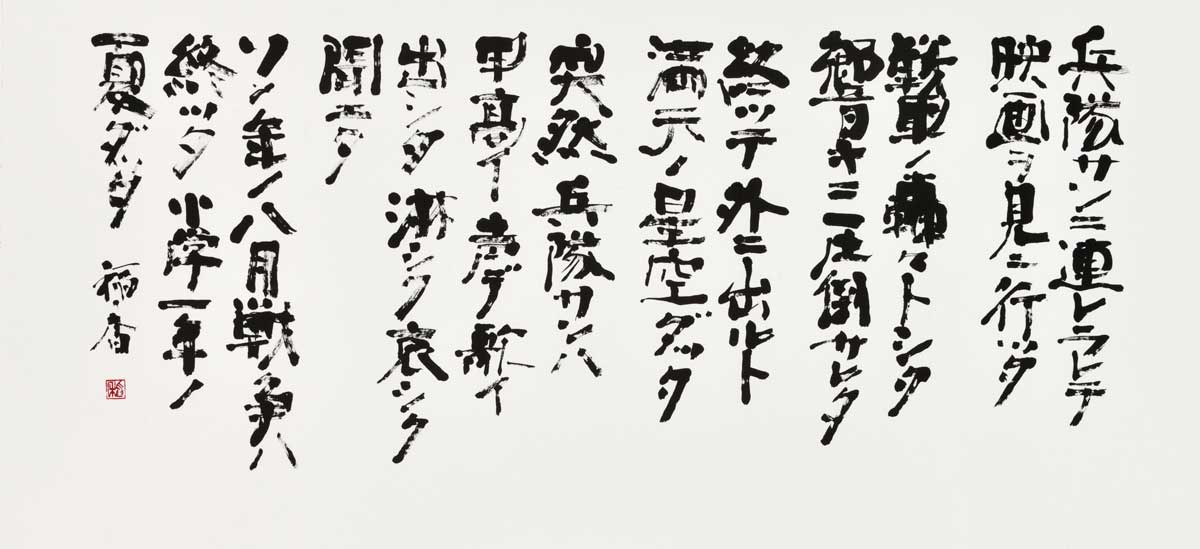 兵隊サンニ連レラレテ
映画ヲ見ニ行ッタ
戦車ノ轟々トシタ
響キニ圧倒サレタ
終ッテ外ニ出ルト
満天ノ星空ダッタ
突然 兵隊サンハ
甲高イ声デ歌イ
出シタ 淋シク哀シク
聞エタ
ソノ年ノ八月戦争ハ
終ッタ 小学一年ノ
夏ダッタ